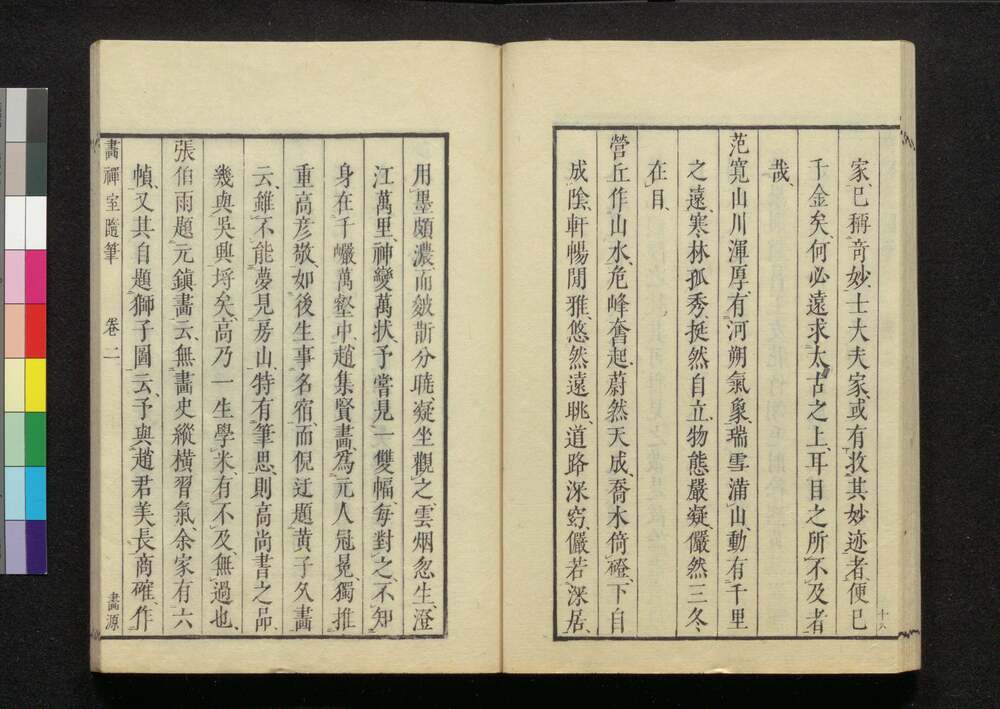 家、已稱奇妙、士大夫家、或有收其妙迹者、便已
千金矣、何必遠求太古之上、耳目之所不及者
哉、
范寬山川渾厚、有河朔氣象、瑞雪滿山、動有千里
之遠、寒林孤秀、挺然自立、物態嚴凝、儼然三冬
在目、
營丘作山水、危峰奮起、蔚然天成、喬木倚磴、下自
成陰、軒暢閒雅、悠然遠眺、道路深窈、儼若深居、
十六
用墨頗濃、而皴斮分曉、凝坐觀之、雲烟忽生、澄
江萬里、神變萬狀、予嘗見一雙幅、每對之、不知
身在千巖萬壑中、趙集賢畫、為元人冠冕、獨推
重高彥敬、如後生事名宿、而倪迂題黃子久畫
云、雖不能夢見房山、特有筆思、則高尚書之品
幾與吳興埒矣、高乃一生學米、有不及、無過也、
張伯雨題元鎮畫云、無畫史縱橫習氣、余家有六
幀、又其自題獅子圖云、予與趙君美長商確、作
畫禪室隨筆 卷二 畫源